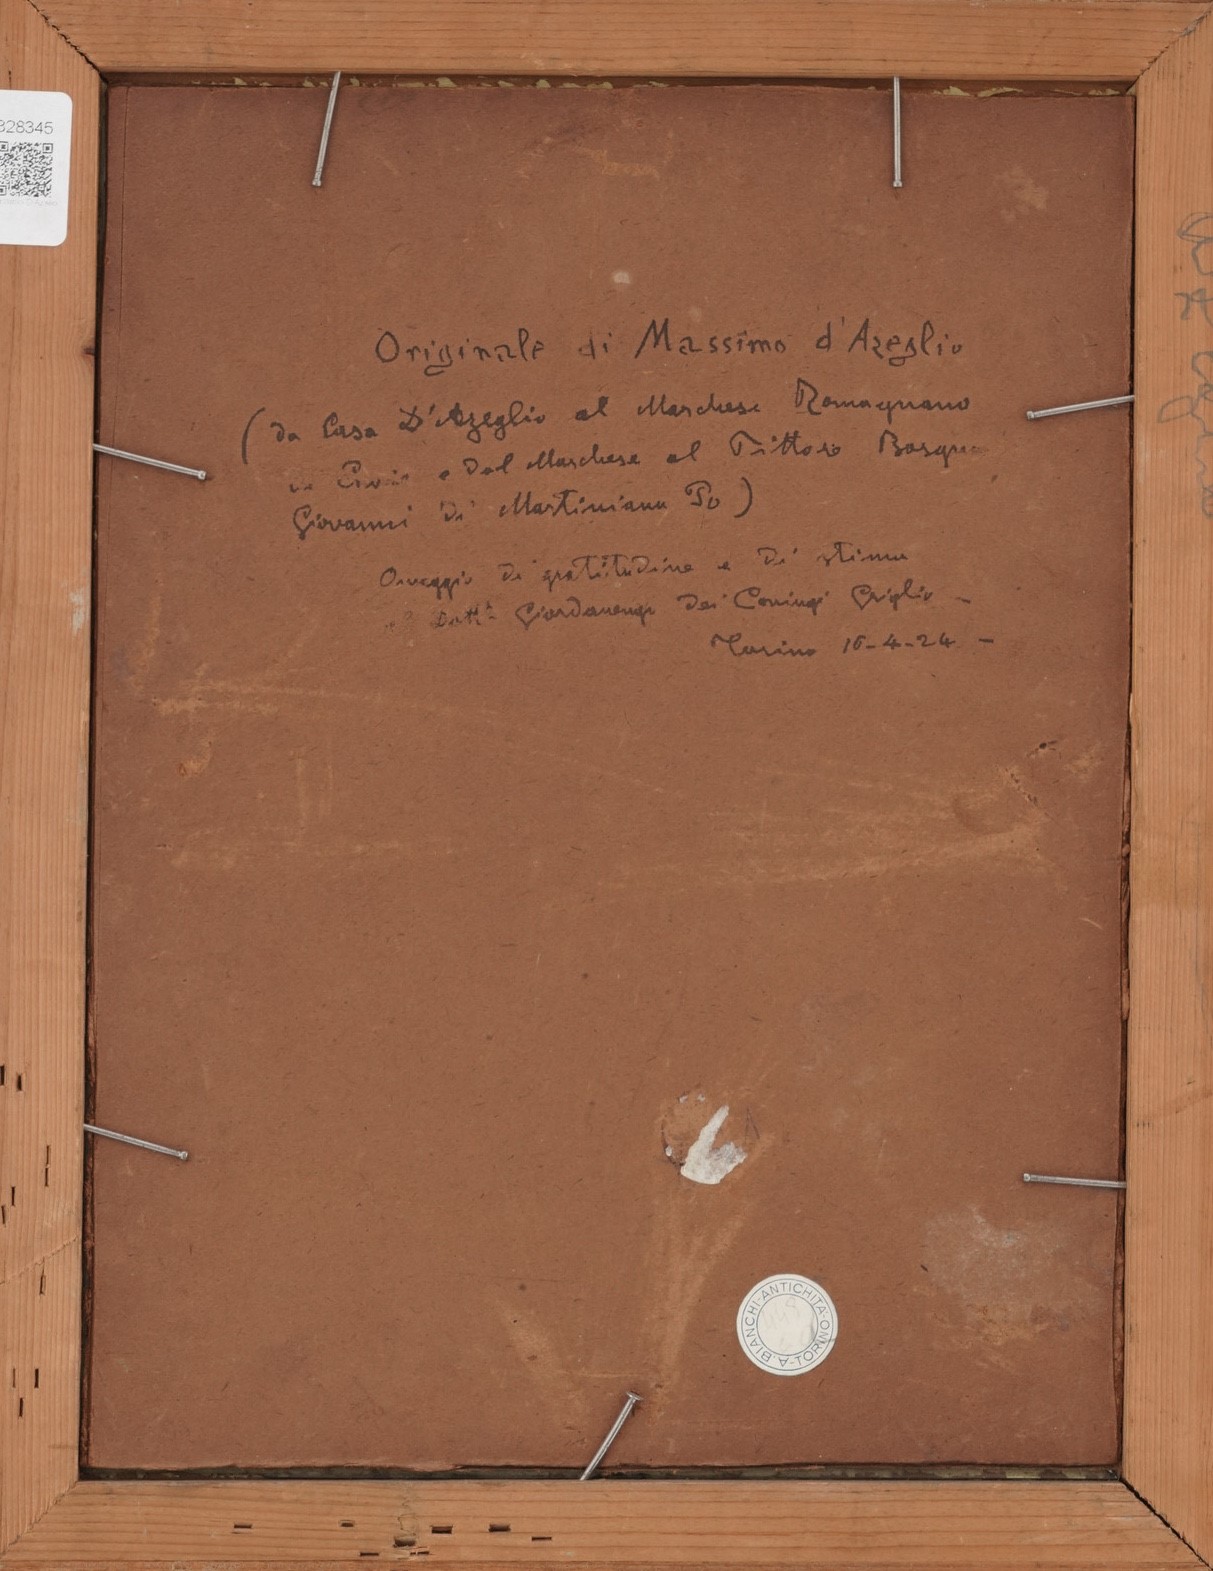 328345
Originale di Massimo d'Azeglio
(da Casa D'Azeglio al Marchese Romagnano
e dal Marchese al Pittore
Giovanni di Martiniana Po)
Omaggio di gratitudine e di stima
Dott. Giordanengo dei Coniugi Griglio -
Torino 16-4-24 -
A. BIANCHI - ANTICHITA' - TORINO